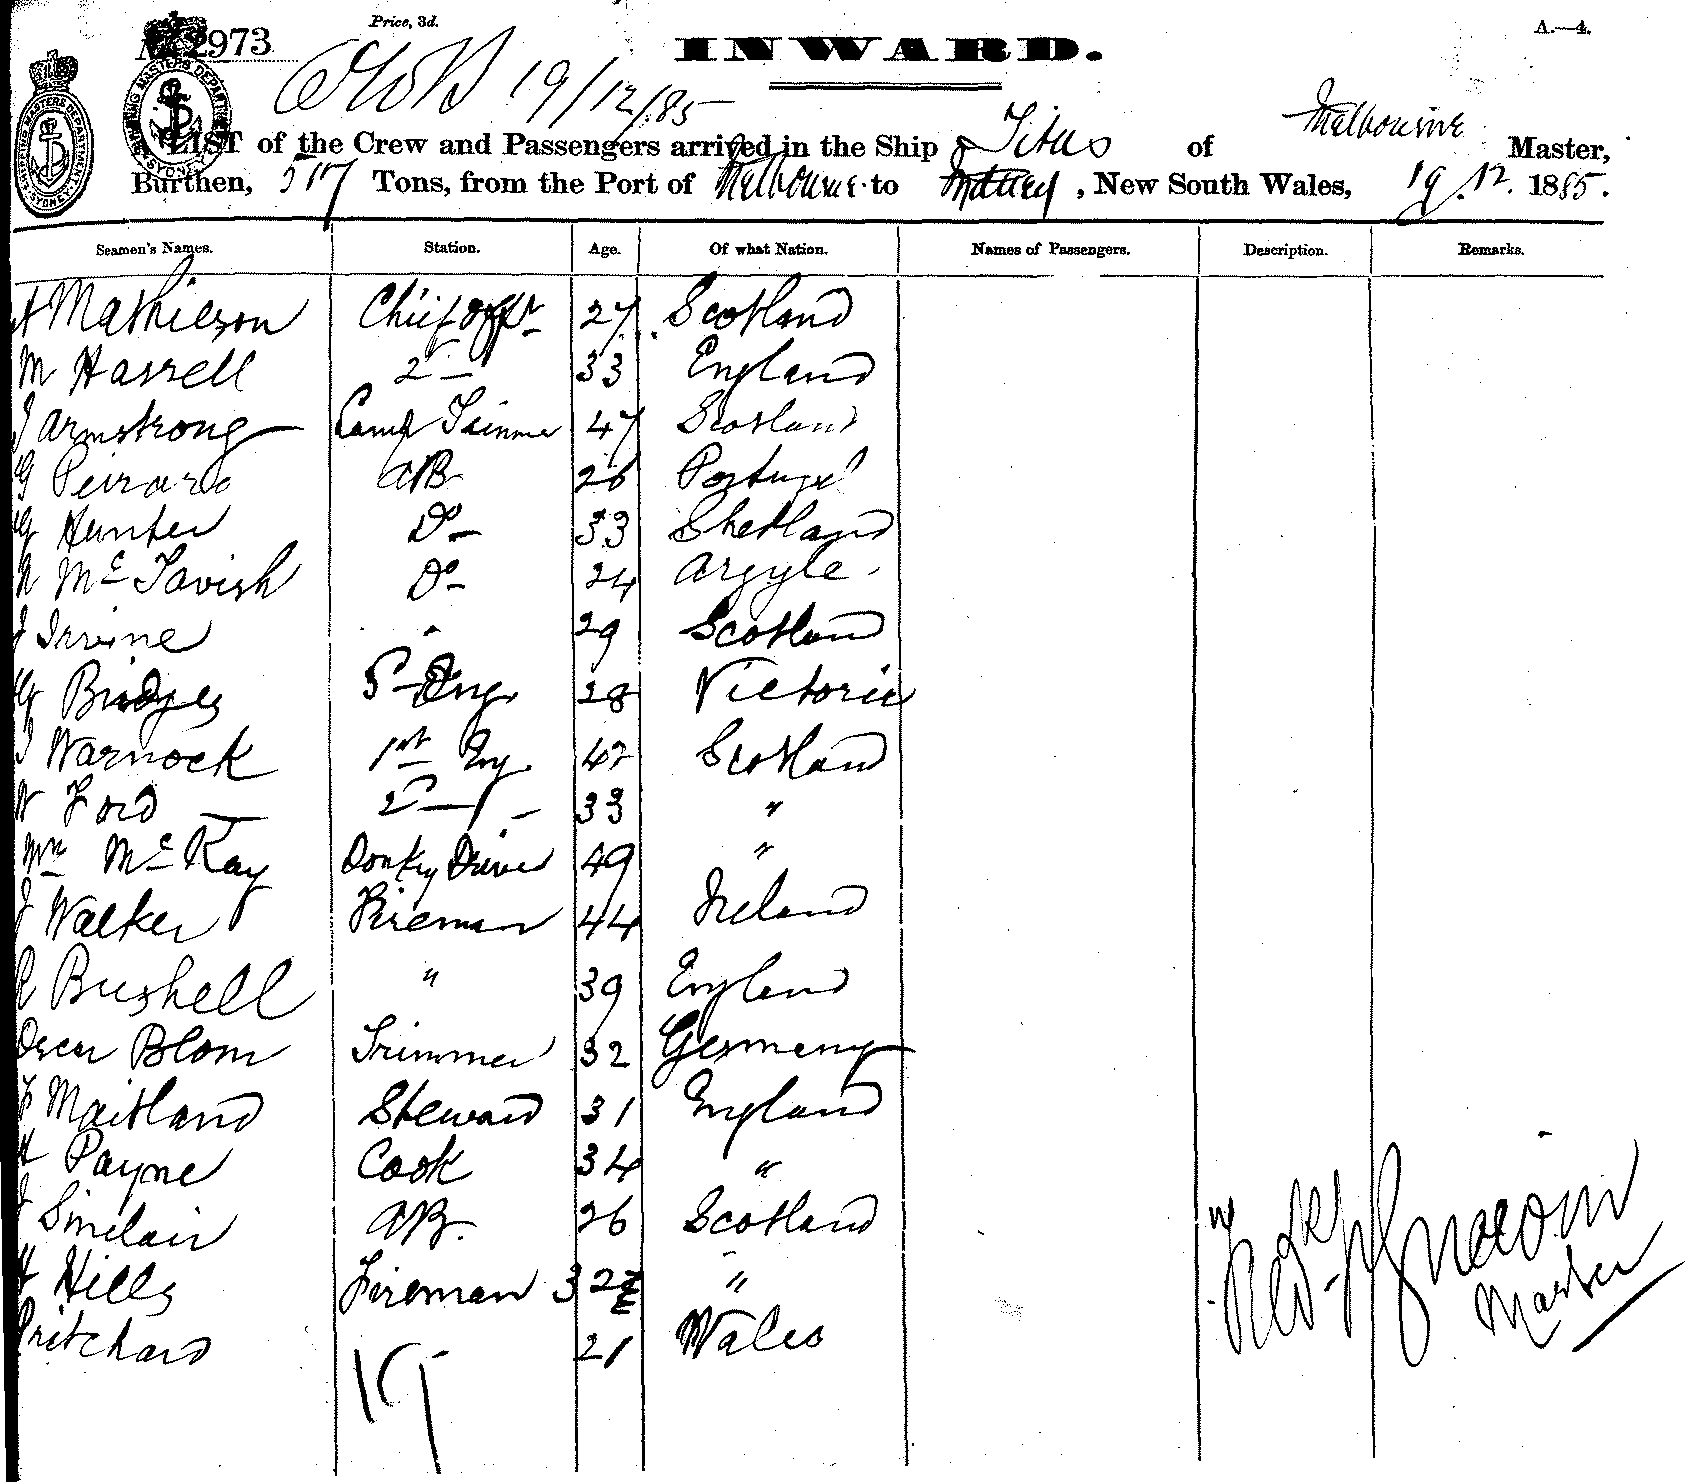 Price, 3d.
A.—4.
2973
INWARD.
19/12/85
Melbourne
LIST of the Crew and Passengers arrived in the Ship Titus of Master,
Burthen, 517 Tons, from the Port of Melbourne to , New South Wales, 19.12.1885.
Seamen's Names. Station. Age. Of what Nation. Names of Passengers. Description. Remarks.
A Mathieson Chief Offr 27 Scotland
M Harrell 2nd 33 England
J Armstrong Lamp Trimmer 47 Scotland
G AB 26 Portugal
G Hunter Do 33 Shetland
N McTavish Do 24 Argyle
J Irvine " 29 Scotland
G Bridges Eng 28 Victoria
J Warnock 1st Eng 42 Scotland
W Ford 2nd 33 "
Wm McKay Donkey Driver 49 "
J Walker Fireman 44 Ireland
R Bushell " 39 England
Oscar Blom Trimmer 32 Germany
F Maitland Steward 31 England
H Payne Cook 34 "
J Sinclair AB. 26 Scotland
H Hills Fireman 32 "
Pritchard 21 Wales
Master
19